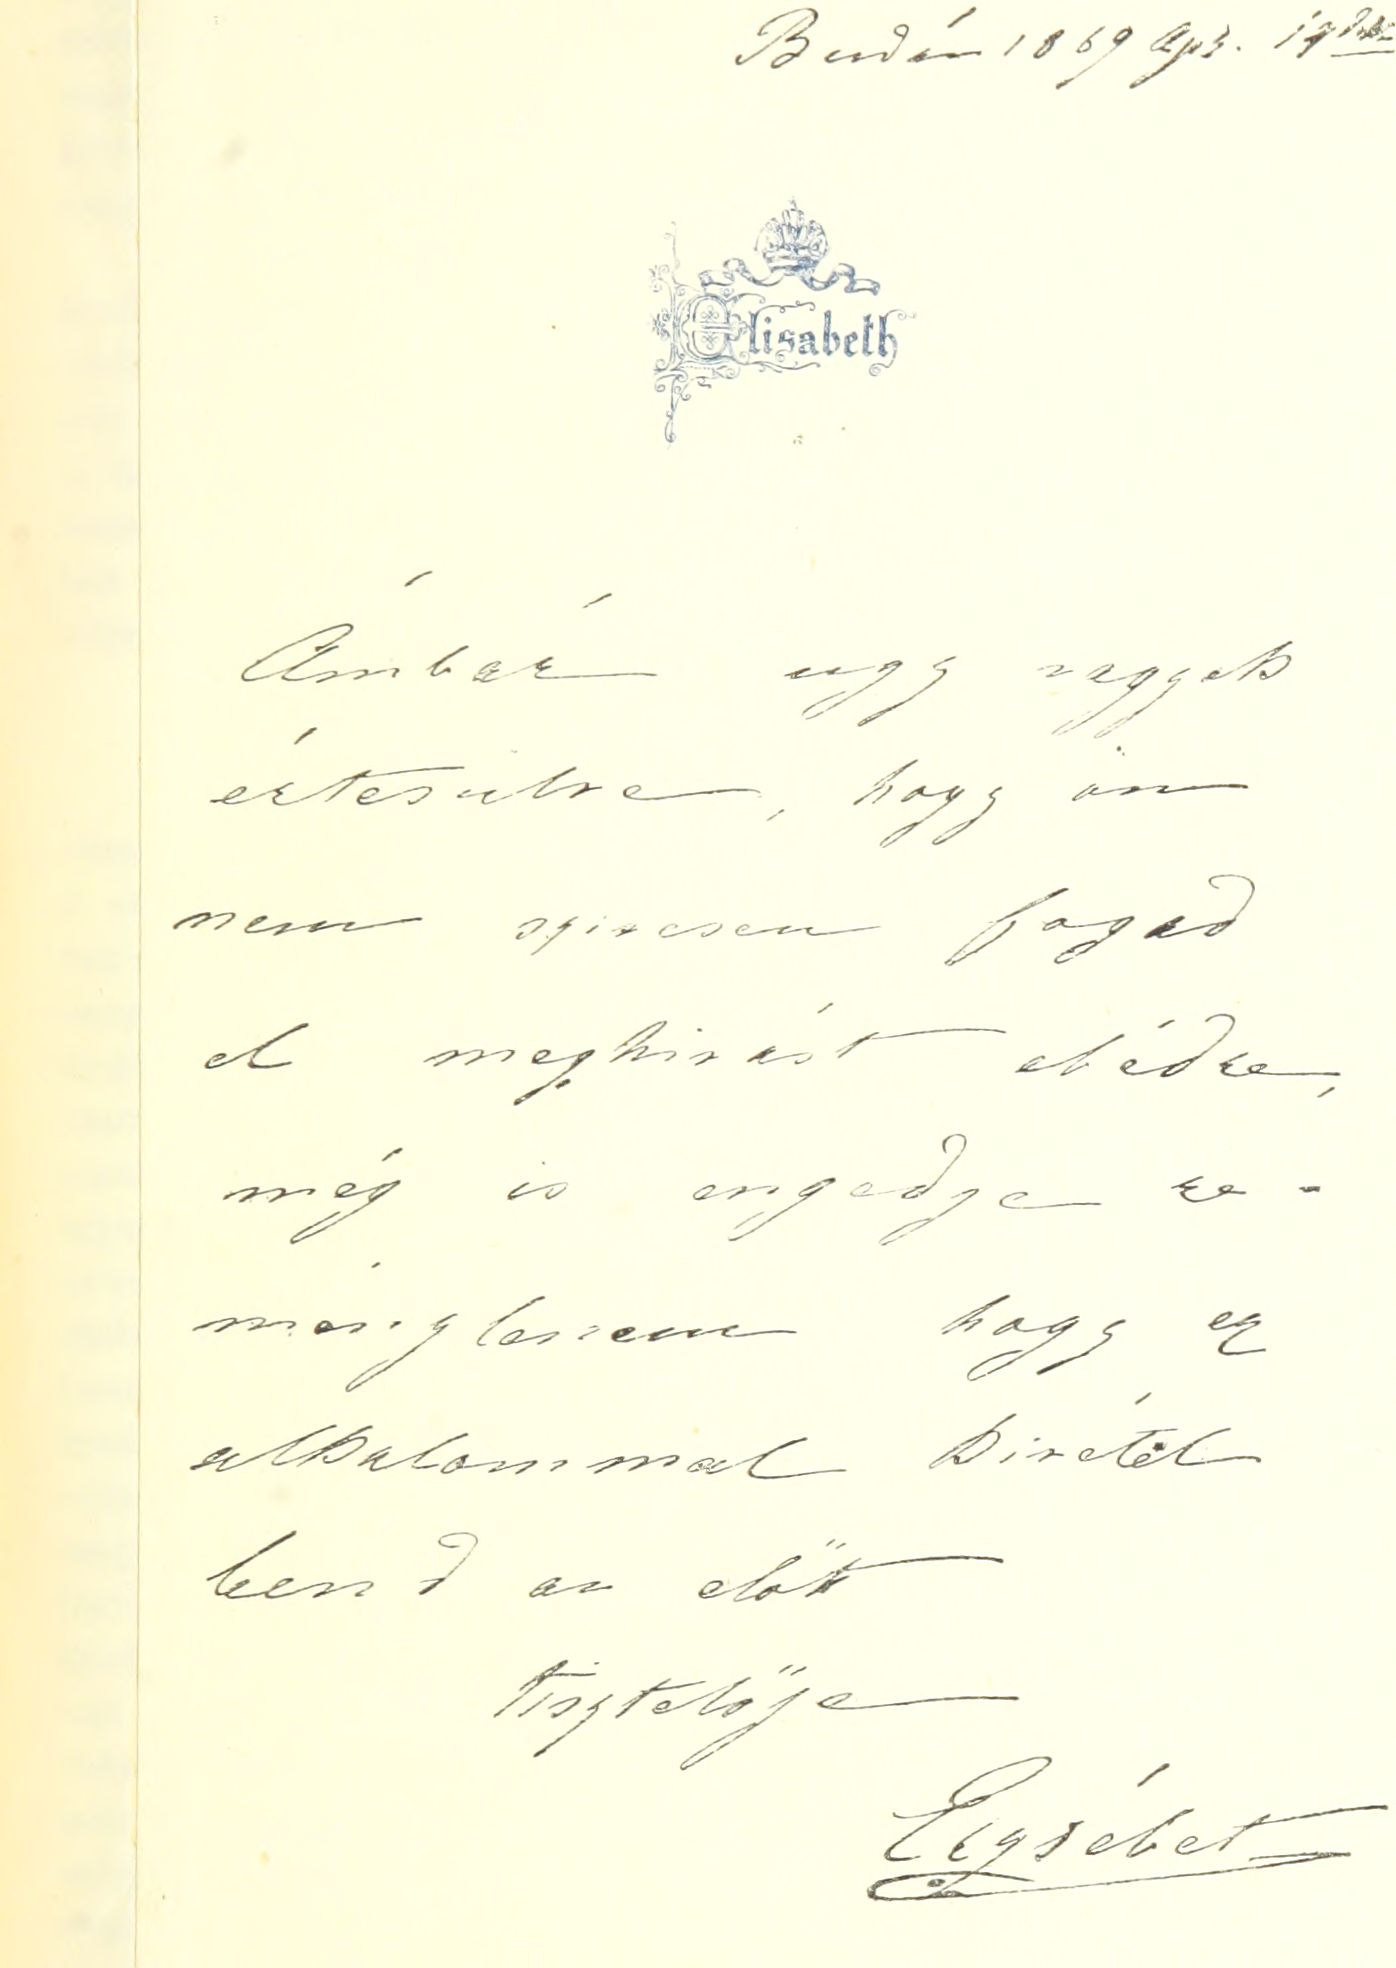 Budán 1869 Apr.
Elisabeth
Ámbár ugy vagyok
értesulve, hogy ön
nem szivesen fogad
el meghivást ebédre,
még is engedje re-
ménylenem hogy ez
alkalommal kivétel
leend ön előtt
tisztelője
Erzsébet